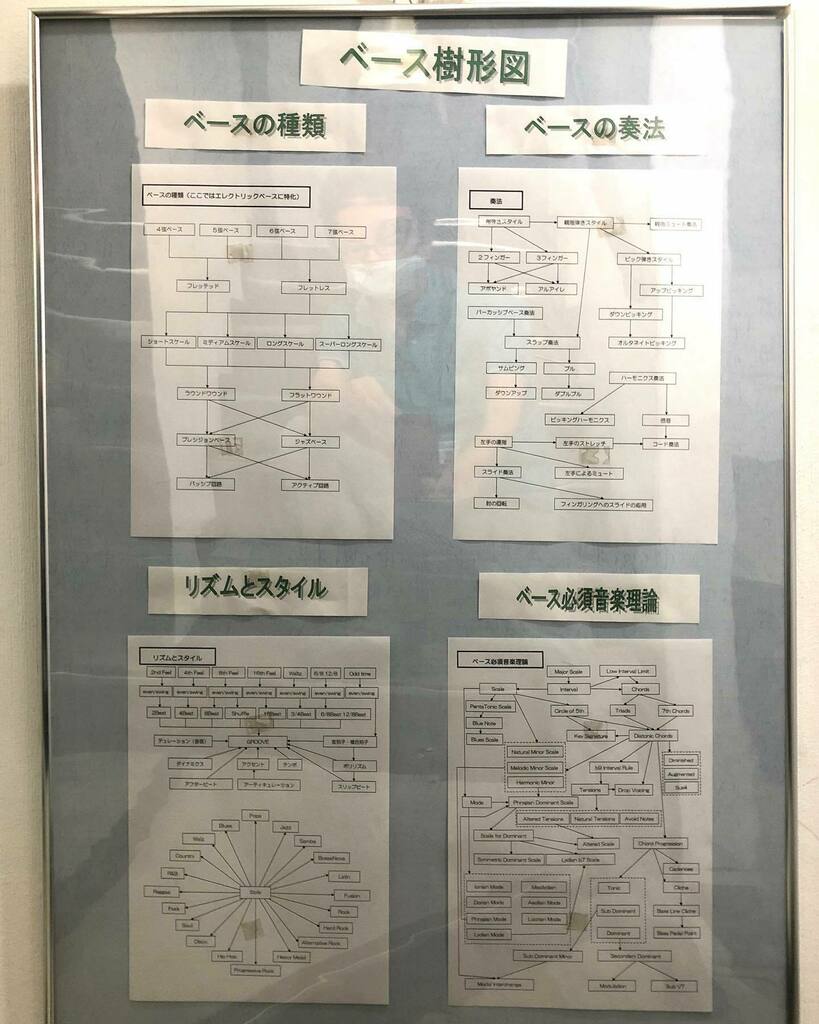 ベース樹形図
ベースの種類
ベースの奏法
ベースの種類（ここではエレクトリックベースに特化）
4弦ベース 5弦ベース 6弦ベース 7弦ベース
フレッテッド フレットレス
ショートスケール ミディアムスケール ロングスケール スーパーロングスケール
ラウンドワウンド フラットワウンド
プレシジョンベース ジャズベース
パッシブ回路 アクティブ回路
奏法
親指弾きスタイル 親指ミュート奏法
2フィンガー 3フィンガー ピック弾きスタイル
アポヤンド アルアイレ アップピッキング
パーカッシブベース奏法 ダウンピッキング
スラップ奏法 オルタネイトピッキング
サムピング プル ハーモニクス奏法
ダウンアップ ダブルプル
ピッキングハーモニクス
左手の運指 左手のストレッチ コード奏法
スライド奏法 左手によるミュート
肘の回転 フィンガリングへのスライドの応用
リズムとスタイル
ベース必須音楽理論
リズムとスタイル
2nd Feel 4th Feel 8th Feel 16th Feel Waltz 6/8 12/8 Odd time
even/swing even/swing even/swing even/swing even/swing even/swing
2Beat 4Beat 8Beat Shuffle 16Beat 3/4Beat 6/8Beat 12/8Beat
デュレーション（音価） GROOVE 変拍子・複合拍子
ダイナミクス アクセント テンポ ポリリズム
アフタービート アーティキュレーション スリップビート
Pops
Blues Jazz
Waltz Samba
Country BossaNova
R&B Latin
Reggae Style Fusion
Funk Rock
Soul Hard Rock
Disco Alternative Rock
Hip Hop Heavy Metal
Progressive Rock
ベース必須音楽理論
Major Scale Low Interval Limit
Scale Interval Chords
PentaTonic Scale Circle of 5th Triads 7th Chords
Blue Note
Blues Scale Key Signature Diatonic Chords
Natural Minor Scale Diminished
Melodic Minor Scale b9 Interval Rule Augmented
Harmonic Minor Tensions Drop Voicing Sus4
Mode Phrygian Dominant Scale
Altered Tensions Natural Tensions Avoid Notes
Scale for Dominant Altered Scale Chord Progression
Symmetric Dominant Scale Lydian b7 Scale Cadences
Ionian Mode Mixolydian Tonic Cliche
Dorian Mode Aeolian Mode
Phrygian Mode Locrian Mode Sub Dominant Bass Line Cliche
Lydian Mode Dominant Bass Pedal Point
Sub Dominant Minor Secondary Dominant
Modal Interchange Modulation Sub V7